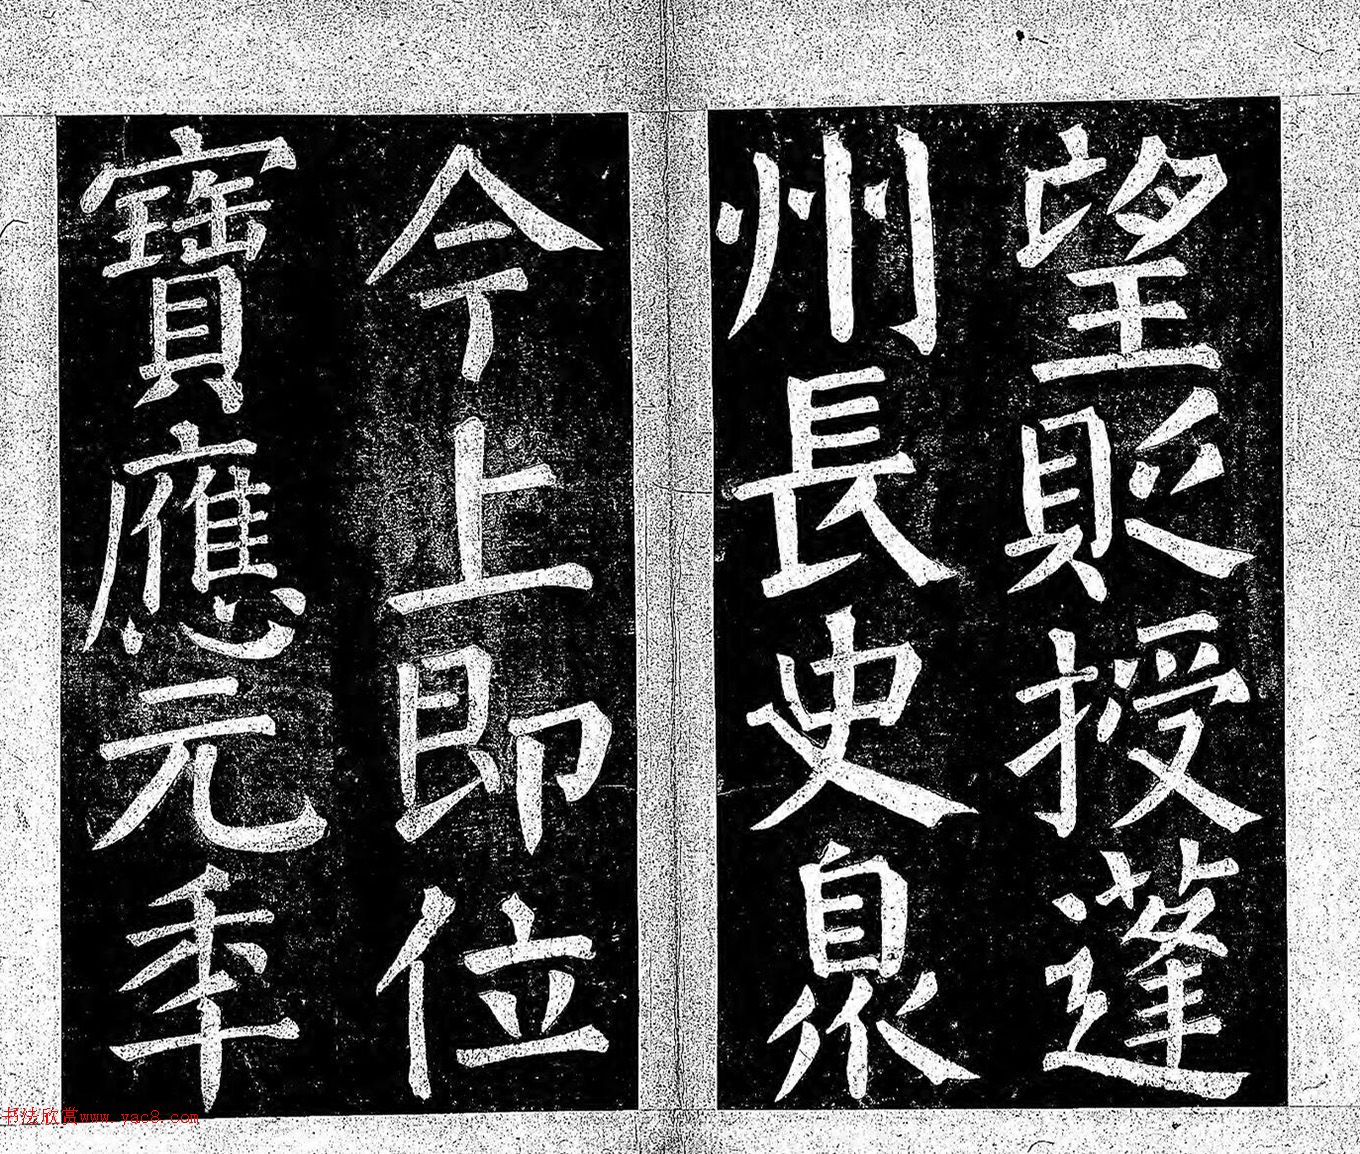 望貶授蓬
州長史泉
今上即位
寶應元年
书法欣赏www.yac8.com